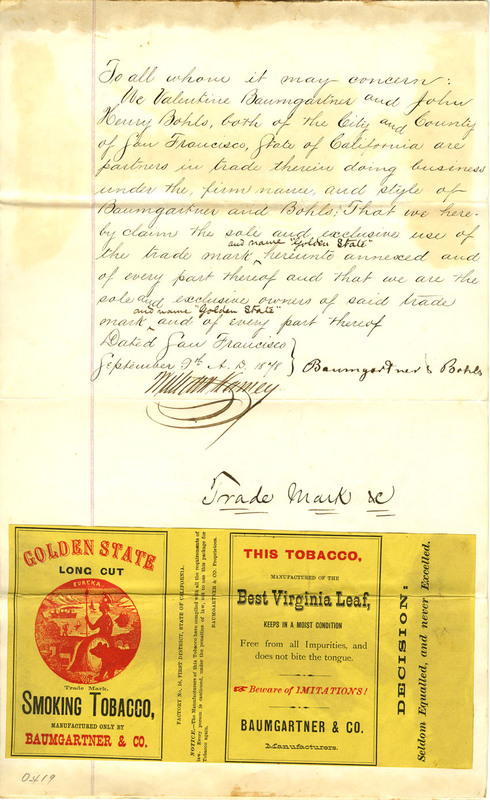 To all whom it may concern:
We Valentine Baumgartner and John
Henry Bohls, both of the City and County
of San Francisco, State of California are
partners in trade therein doing business
under the, firm name, and style of
Baumgartner and Bohls; That we here-
by claim the sole and exclusive use of
and name "Golden State"
the trade mark ^ hereunto annexed and
of every part thereof and that we are the
sole and exclusive owners of said trade
and name "Golden State"
mark ^ and of every part thereof
Dated San Francisco
September 9th A. D. 1878 } Baumgartner & Bohls
Trade Mark &c
GOLDEN STATE
LONG CUT
EUREKA
Trade Mark.
SMOKING TOBACCO,
MANUFACTURED ONLY BY
BAUMGARTNER & CO.
FACTORY No. 16, FIRST DISTRICT, STATE OF CALIFORNIA.
NOTICE.—The Manufacturers of this Tobacco have complied with all the requirements of
law. Every person is cautioned, under the penalties of law, not to use this package for
Tobacco again.
BAUMGARTNER & CO. Proprietors.
THIS TOBACCO,
MANUFACTURED OF THE
Best Virginia Leaf,
KEEPS IN A MOIST CONDITION
Free from all Impurities, and
does not bite the tongue.
Beware of IMITATIONS!
BAUMGARTNER & CO.
Manufacturers.
DECISION:
Seldom Equalled, and never Excelled.
0419